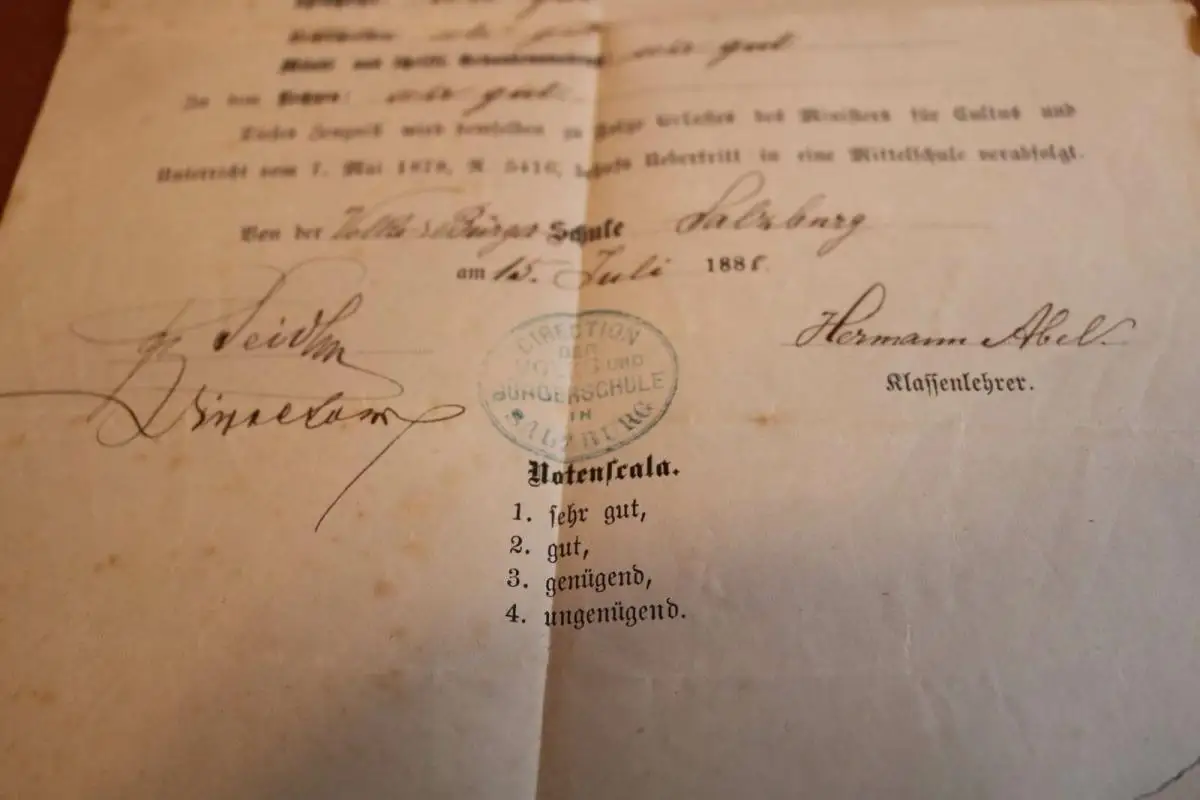 sehr gut
Münd. und schriftl. Gedankenausdruck sehr gut
In dem Rechnen: sehr gut
Dieses Zeugniß wird demselben zu Folge Erlasses des Ministers für Cultus und
Unterricht vom 7. Mai 1878, N. 5416, behufs Uebertritt in eine Mittelschule verabfolgt.
Von der Volks- u Bürger Schule Salzburg
am 15. Juli 188
Seidler
Director
Hermann Abel
Klassenlehrer.
DIRECTION
DER
VOLKS UND
BÜRGERSCHULE
IN
SALZBURG
Notenscala.
1. sehr gut,
2. gut,
3. genügend,
4. ungenügend.